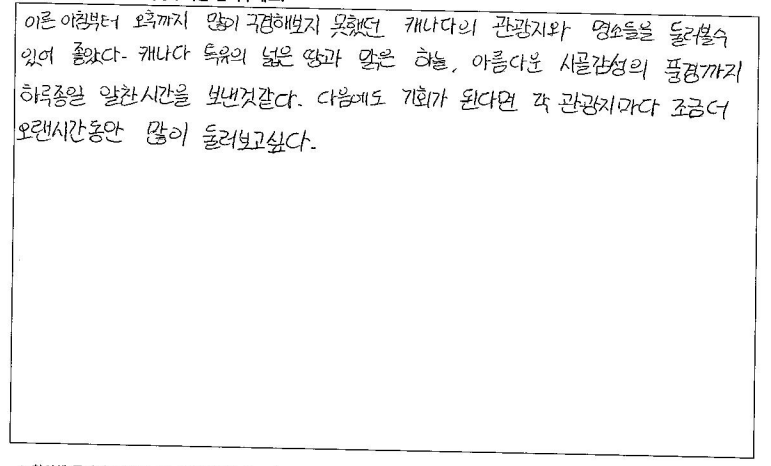 이른 아침부터 오후까지 많이 구경해보지 못했던 캐나다의 관광지와 명소들을 둘러볼수
있어 좋았다. 캐나다 특유의 넓은 땅과 맑은 하늘, 아름다운 시골감성의 풍경까지
하루종일 알찬시간을 보낸것같다. 다음에도 기회가 된다면 각 관광지마다 조금더
오랜시간동안 많이 둘러보고싶다.